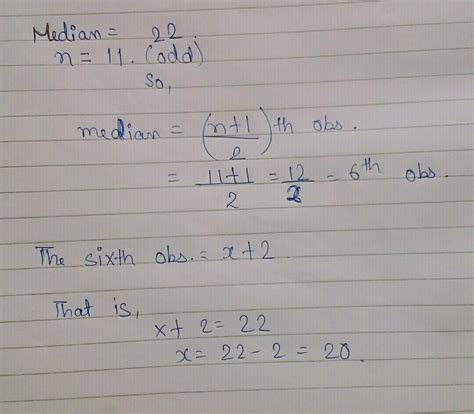 Median = 22.
n = 11. (odd)
So,
median = (n+1/2)th obs.
= 11+1/2 = 12/2 = 6th obs.
The sixth obs. = x+2.
That is,
x+ 2 = 22
x= 22-2 = 20.